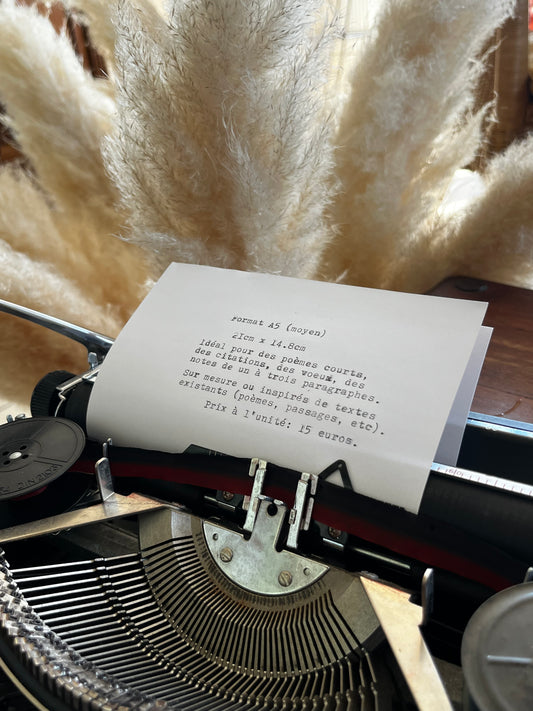 Format A5 (moyen)
21cm x 14.8cm
Idéal pour des poèmes courts,
des citations, des voeux, des
notes de un à trois paragraphes.
Sur mesure ou inspirés de textes
existants (poèmes, passages, etc).
Prix à l'unité: 15 euros.